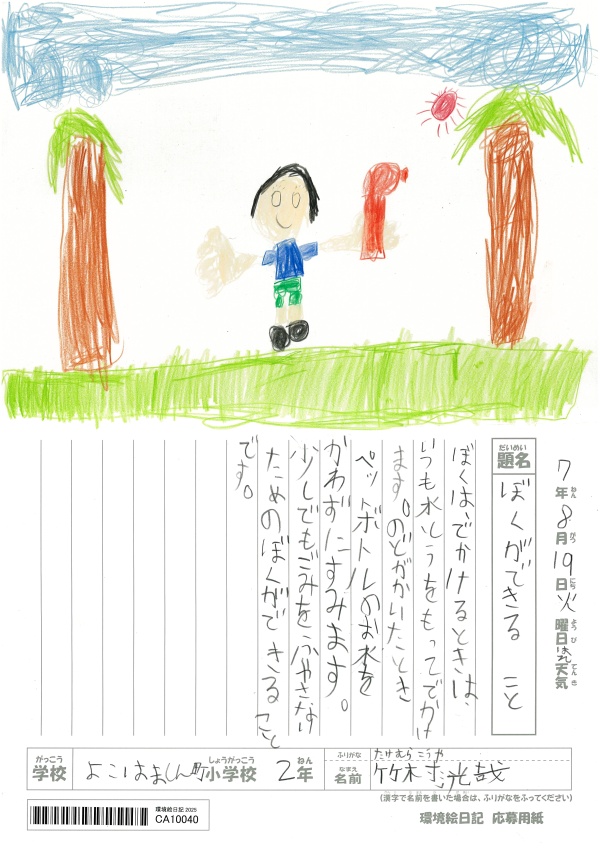 7年8月19日火曜日はれ天気
ねん がつ にち ようび てんき
だいめい
題名 ぼくができること
ぼくは、でかけるときは、
いつも水とうをもってでかけ
ます。のどがかいたとき
ペットボトルのお水を
かわずにすみます。
少しでもごみをふやさない
ためのぼくができること
です。
がっこう しょうがっこう ねん
学校 よこはましん町小学校 2年
ふりがな たけむらこうや
なまえ
名前 竹村光哉
(漢字で名前を書いた場合は、ふりがなをふってください)
環境絵日記 2025
CA10040
環境絵日記 応募用紙